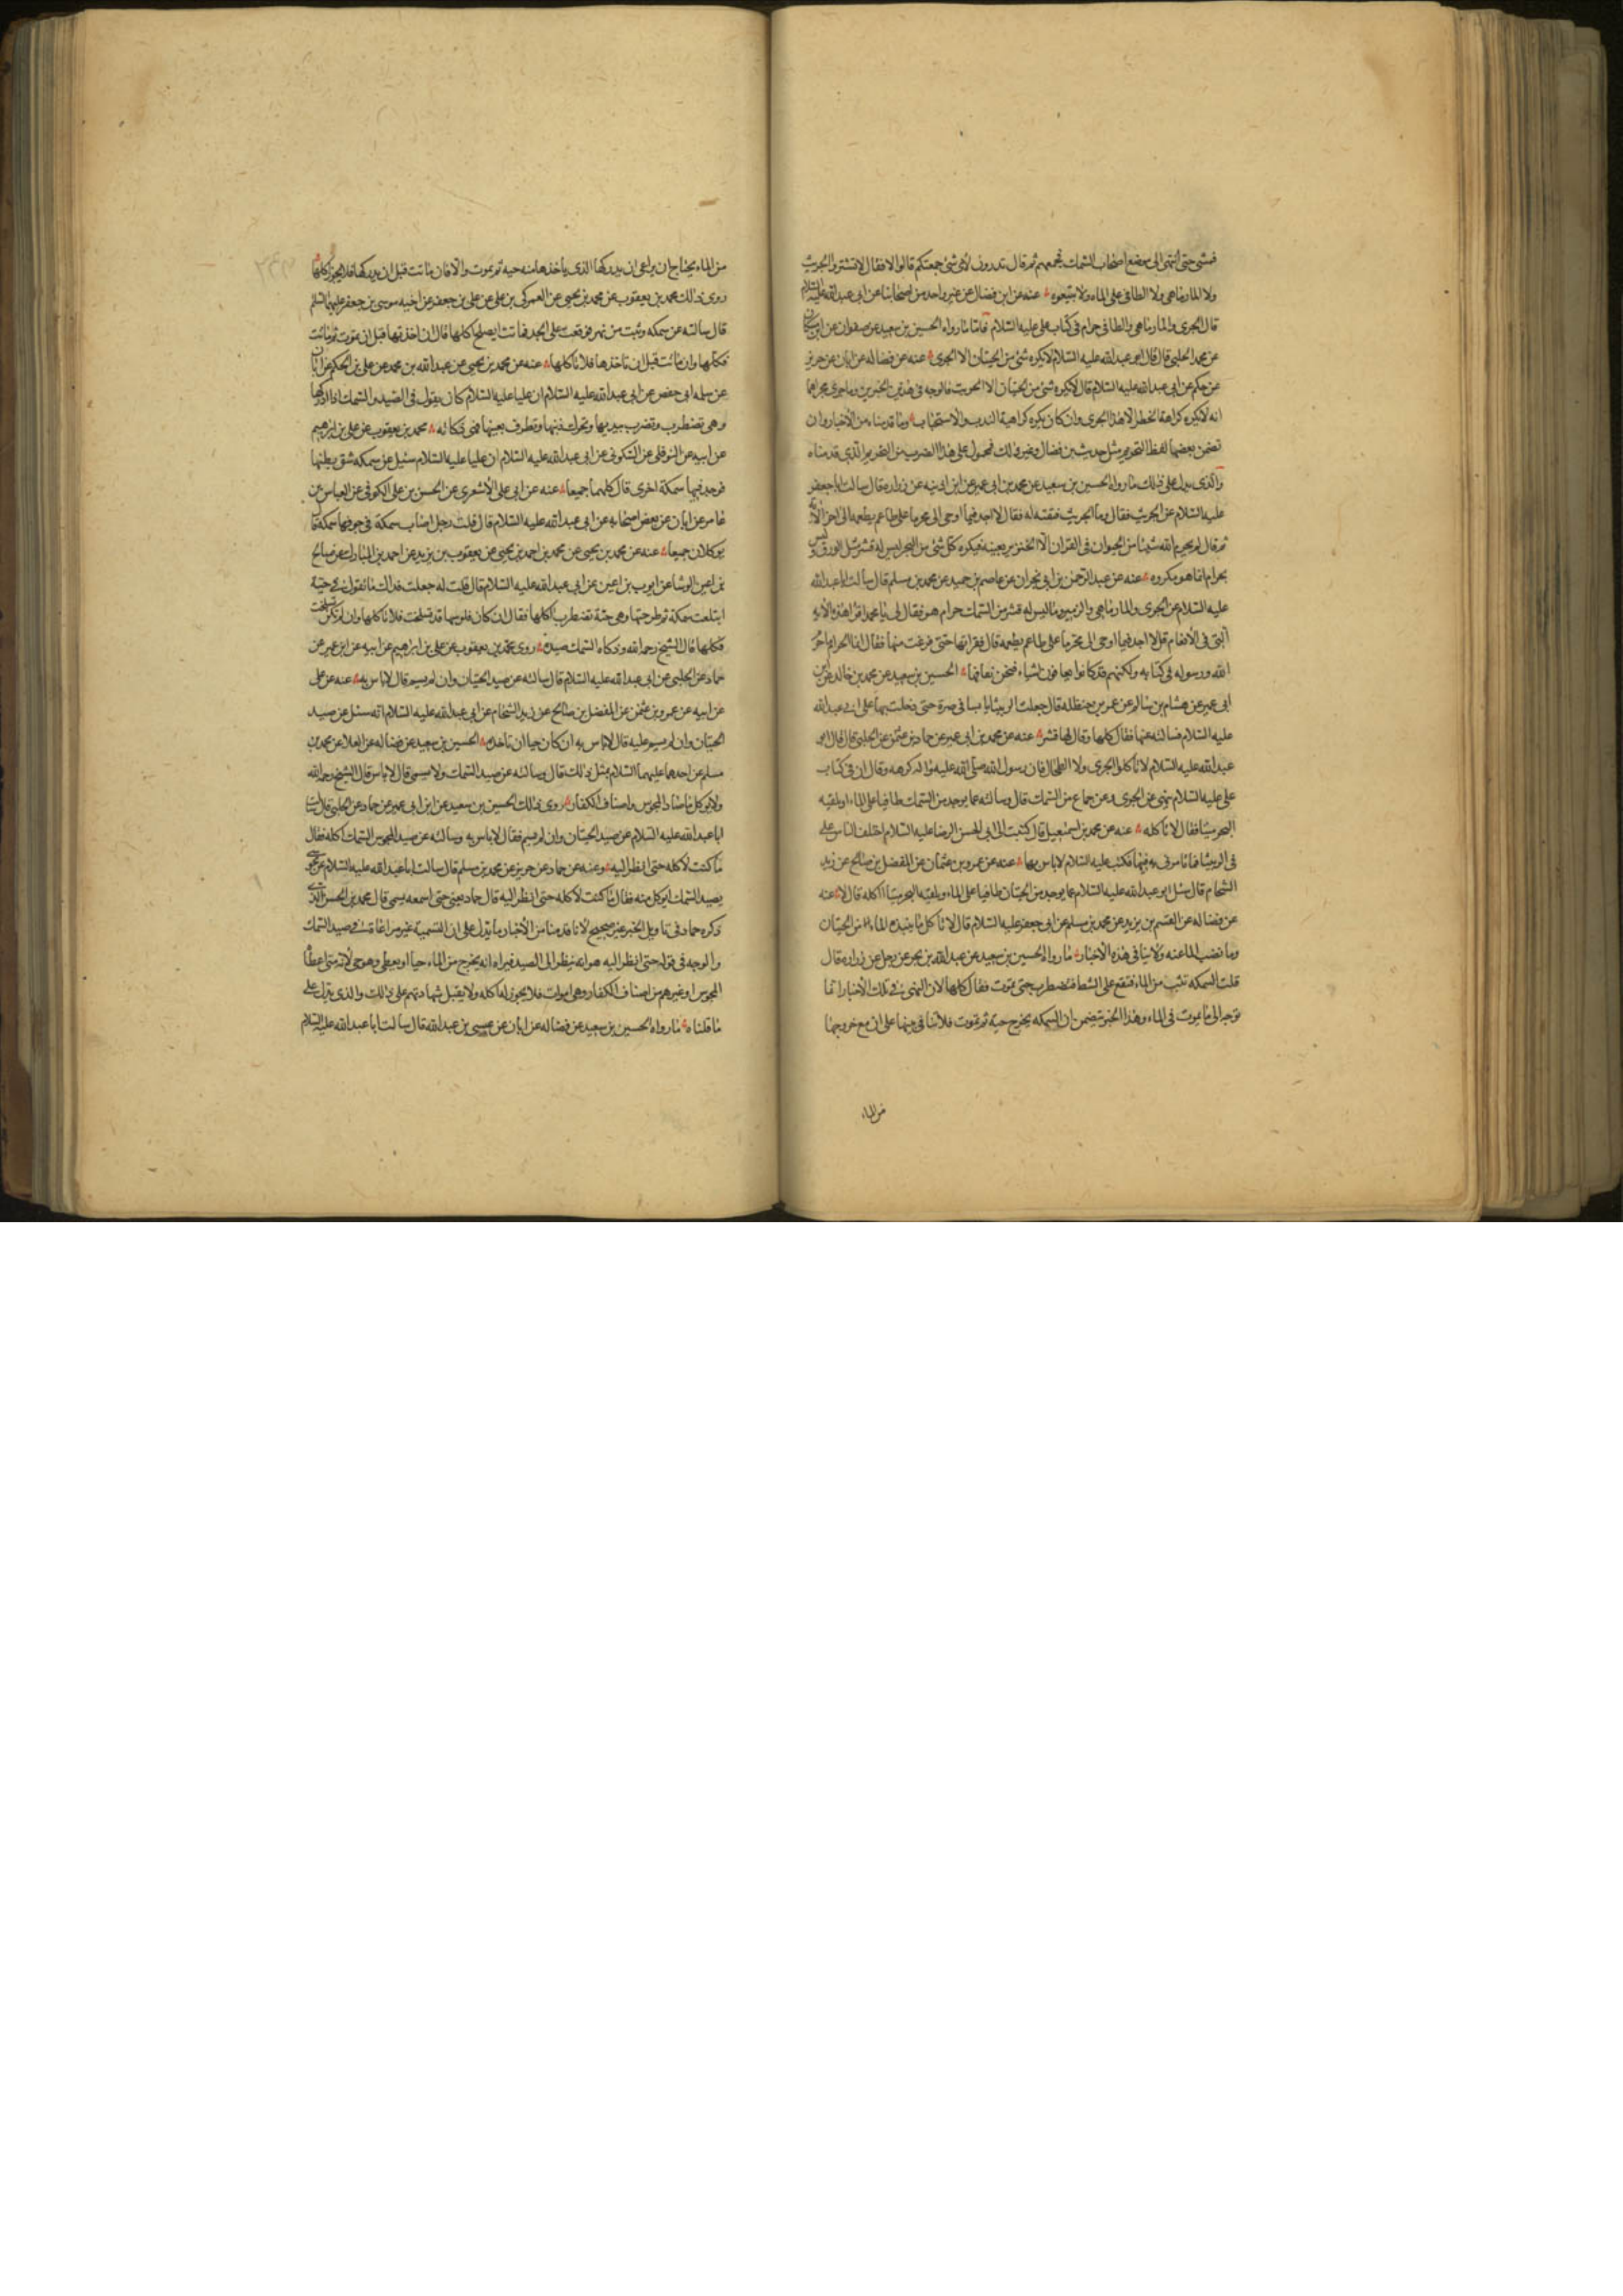 فمشى حتى انتهى الى موضع اصحاب السمك فجمعهم ثم قال تدرون لاى شئ جمعتكم قالوا لا فقال لا تشتروا الجريث
ولا المارماهى ولا الطافى على الماء ولا تبيعوه عنه عن ابن فضال عن غير واحد من اصحابنا عن ابى عبدالله عليه السلام
قال الجرى والمارماهى والطافى حرام فى كتاب على عليه السلام فاما ما رواه الحسين بن سعيد عن صفوان عن ابن مسكان
عن محمد الحلبى قال قال ابو عبدالله عليه السلام لا يكره شئ من الحيتان الا الجرى عنه عن فضاله عن ابان عن حريز
عن حكم عن ابى عبدالله عليه السلام قال لا يكره شئ من الحيتان الا الجريث فالوجه فى هذين الخبرين وما جرى مجراهما
انه لا يكره كراهة الحظر الا هذا الجرى وان كان يكره كراهية الندب والاستحباب وما قدمناه من الاخبار وان
تضمن بعضها لفظ التحريم مثل حديث بن فضال وغير ذلك فمحمول على هذا الضرب من التحريم الذى قدمناه
والذى يدل على ذلك ما رواه الحسين بن سعيد عن محمد بن ابى عمير عن ابن اذينه عن زراره قال سالت ابا جعفر
عليه السلام عن الجريث فقال وما الجريث فنعته له فقال لا اجد فيما اوحى الى محرما على طاعم يطعمه الى اخر الآية
ثم قال لم يحرم الله شيئا من الحيوان فى القران الا الخنزير بعينه ويكره كل شئ من البحر ليس له قشر مثل الورق وليس
بحرام انما هو مكروه عنه عن عبد الرحمن بن ابى نجران عن عاصم بن حميد عن محمد بن مسلم قال سالت ابا عبدالله
عليه السلام عن الجرى والمارماهى والزمير وما ليس له قشر من السمك حرام هو فقال لى يا محمد اقرا هذه الاية
التى فى الانعام قل لا اجد فيما اوحى الى محرما على طاعم يطعمه قال فقراتها حتى فرغت منها فقال انما الحرام ما حرم
الله ورسوله فى كتابه ولكنهم قد كانوا يعافون اشياء فنحن نعافها الحسين بن سعيد عن محمد بن خالد عن ابن
ابى عمير عن هشام بن سالم عن عمر بن حنظله قال حملت الربيثا يابسا فى صرة حتى دخلت بها على ابى عبدالله
عليه السلام فسالته عنها فقال كلها وقال لها قشر عنه عن محمد بن ابى عمير عن حماد بن عثمن عن الحلبى قال قال ابو
عبدالله عليه السلام لا تاكلوا الجرى ولا الطحال فان رسول الله صلى الله عليه واله كرهه وقال ان فى كتاب
على عليه السلام ينهى عن الجرى وعن جماع من السمك قال وسالته عما يوجد من السمك طافيا على الماء او يلقيه
البحر ميتا فقال لا تاكله عنه عن محمد بن اسمعيل قال كتبت الى ابى الحسن الرضا عليه السلام اختلف الناس على
فى الربيثا فما تامرنى به فيها فكتب عليه السلام لا باس بها عنه عن عمرو بن عثمان عن المفضل بن صالح عن زيد
الشحام قال سئل ابو عبدالله عليه السلام عما يوجد من الحيتان طافيا على الماء ويلقيه البحر ميتا اكله قال لا عنه
عن فضاله عن القسم بن بريد عن محمد بن مسلم عن ابى جعفر عليه السلام قال لا تاكل ما ينبذه الماء من الحيتان
وما نضب الماء عنه ولا ينافى هذه الاخبار ما رواه الحسين بن سعيد عن عبدالله بن بحر عن رجل عن زراره قال
قلت السمكه تثب من الماء فتقع على الشط فتضطرب حتى تموت فقال كلها لان النهى فى تلك الاخبار انما
توجه الى ما يموت فى الماء وهذا الخبر يتضمن ان السمكه يخرج حية ثم تموت فلا تنافى بينها على ان مع خروجها
من الماء
من الماء يحتاج ان يراعى ان يدركها الذى ياخذها منه حيه ثم يموت والا فان ماتت قبل ان يدركها فلا يجوز اكلها
روى ذلك محمد بن يعقوب عن محمد بن يحيى عن العمركى بن على عن على بن جعفر عن اخيه موسى بن جعفر عليهما السلم
قال سالته عن سمكه وثبت من نهر فوقعت على الجد فماتت ايصلح اكلها قال ان اخذتها قبل ان تموت ثم ماتت
فكلها وان ماتت قبل ان تاخذها فلا تاكلها عنه عن محمد بن يحيى عن عبدالله بن محمد عن على بن الحكم عن ابان
عن سلمه ابى حفص عن ابى عبدالله عليه السلام ان عليا عليه السلام كان يقول فى الصيد والسمك اذا ادركها
وهى تضطرب وتضرب بيديها وتحرك ذنبها وتطرف بعينها فهى ذكاته محمد بن يعقوب عن على بن ابراهيم
عن ابيه عن النوفلى عن السكونى عن ابى عبدالله عليه السلام ان عليا عليه السلام سئل عن سمكه شق بطنها
فوجد فيها سمكة اخرى قال كلهما جميعا عنه عن ابى على الاشعرى عن الحسن بن على الكوفى عن العباس بن
عامر عن ابان عن بعض اصحابه عن ابى عبدالله عليه السلام قال قلت رجل اصاب سمكة فى جوفها سمكة قال
يوكلان جميعا عنه عن محمد بن يحيى عن محمد بن احمد بن يحيى عن يعقوب بن يزيد عن احمد بن المبارك عن صالح
بن اعين الوشا عن ايوب بن اعين عن ابى عبدالله عليه السلام قال قلت له جعلت فداك ما تقول فى حية
ابتلعت سمكة ثم طرحتها وهى حية تضطرب اكلها فقال ان كان فلوسها قد تسلخت فلا تاكلها وان لم تكن تسلخت
فكلها قال الشيخ رحمه الله وذكاه السمك صيده روى محمد بن يعقوب عن على بن ابراهيم عن ابيه عن ابن عمير عن
حماد عن الحلبى عن ابى عبدالله عليه السلام قال سالته عن صيد الحيتان وان لم يسم قال لا باس به عنه عن على
عن ابيه عن عمرو بن عثمن عن المفضل بن صالح عن زيد الشحام عن ابى عبدالله عليه السلام انه سئل عن صيد
الحيتان وان لم يسم عليه قال لا باس به ان كان حيا ان تاخذه الحسين بن سعيد عن فضاله عن العلا عن محمد بن
مسلم عن احدهما عليهما السلام مثل ذلك قال وسالته عن صيد السمك ولا يسمى قال لا باس قال الشيخ رحمه الله
ولا يوكل ما صاد المجوس واصناف الكفار روى ذلك الحسين بن سعيد عن ابن ابى عمير عن حماد عن الحلبى قال سالت
ابا عبدالله عليه السلام عن صيد الحيتان وان لم يسم فقال لا باس به وسالته عن صيد المجوس السمك اكله فقال
ما كنت لاكله حتى انظر اليه وعنه عن حماد عن حريز عن محمد بن مسلم قال سالت ابا عبدالله عليه السلام عن مجوسى
يصيد السمك ايوكل منه فقال ما كنت لاكله حتى انظر اليه قال حماد يعنى حتى اسمعه يسمى قال محمد بن الحسن الذى
ذكره حماد فى تاويل الخبر غير صحيح لانا قدمنا من الاخبار ما يدل على ان التسمية غير مراعاة فى صيد السمك
والوجه فى قوله حتى انظر اليه هو انه ينظر الى الصيد فيراه انه يخرج من الماء حيا او يعطى وهو حى لانه متى اعطاه
المجوس او غيرهم من اصناف الكفار وهى اموات فلا يجوز له اكله ولا يقبل شهادتهم على ذلك والذى يدل على
ما قلناه ما رواه الحسين بن سعيد عن فضاله عن ابان عن عيسى بن عبدالله قال سالت ابا عبدالله عليه السلام